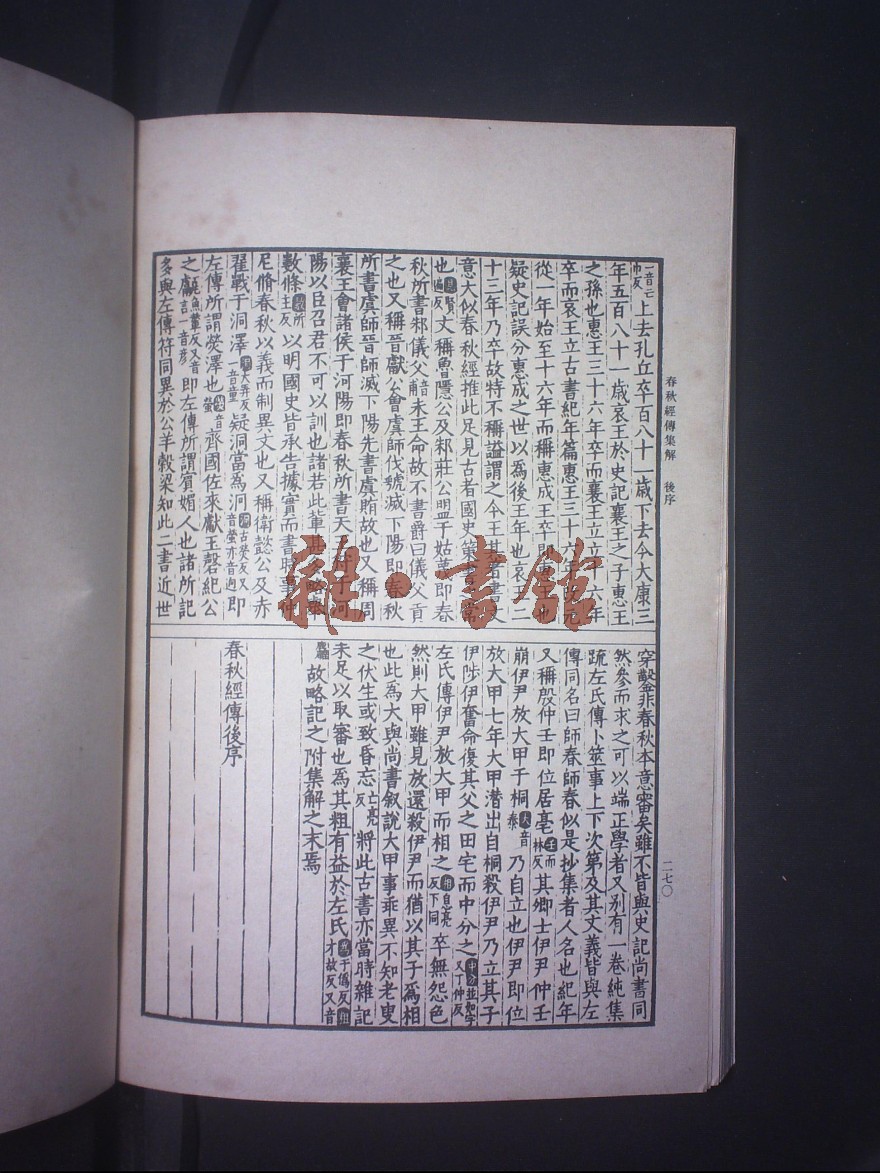 春秋經傳集解 後序
一音亡巾反上去孔丘卒百八十一歲下去今大康三
年五百八十一歲哀王於史記襄王之子惠王
之孫也惠王三十六年卒而襄王立立十六年
卒而哀王立古書紀年篇惠王三十六年改元
從一年始至十六年而稱惠成王卒即惠王也
疑史記誤分惠成之世以為後王年也哀王二
十三年乃卒故特不稱謚謂之今王其著書文
意大似春秋經推此足見古者國史策書之常
也見賢遍反文稱魯隱公及邾莊公盟于姑蔑即春
秋所書邾儀父音甫未王命故不書爵曰儀父貢
之也又稱晉獻公會虞師伐虢滅下陽即春秋
所書虞師晉師滅下陽先書虞賄故也又稱周
襄王會諸侯于河陽即春秋所書天王狩于河
陽以臣召君不可以訓也諸若此輩甚多略舉
數條數所主反以明國史皆承告據實而書時事仲
尼脩春秋以義而制異文也又稱衛懿公及赤
翟戰于洞澤大弄反又一音童疑洞當為泂古熒反又音螢亦音迥即
左傳所謂熒澤也音螢齊國佐來獻王磬紀公
之甗魚輦反又音言一音彥即左傳所謂賓媚人也諸所記
多與左傳符同異於公羊榖梁知此二書近世
穿鑿非春秋本意審矣雖不皆與史記尚書同
然參而求之可以端正學者又別有一卷純集
疏左氏傳卜筮事上下次第及其文義皆與左
傳同名曰師春師春似是抄集者人名也紀年
又稱殷仲壬即位居亳壬而林反其卿士伊尹仲壬
崩伊尹放大甲于桐大音泰乃自立也伊尹即位
放大甲七年大甲潛出自桐殺伊尹乃立其子
伊陟伊奮命復其父之田宅而中分之中分並如字又丁仲反
左氏傳伊尹放大甲而相之相息亮反下同卒無怨色
然則大甲雖見放還殺伊尹而猶以其子為相
也此為大與尚書叙說大甲事乖異不知老叟
之伏生或致昏忘亡亮反將此古書亦當時雜記
未足以取審也為其粗有益於左氏為于偽反粗才故反又音
麤故略記之附集解之末焉
春秋經傳後序
二七〇
雜·書館